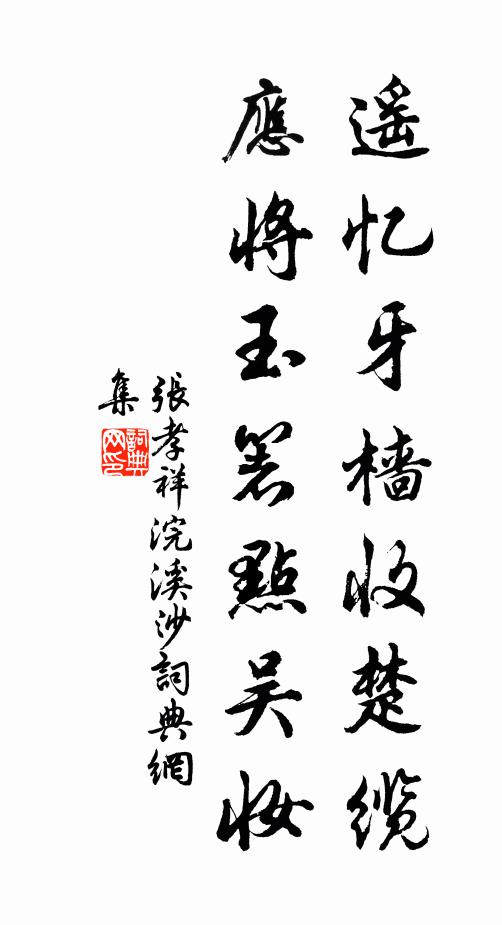 遥忆牙樯收楚缆
應將玉箸點吴妝
張孝祥浣溪沙詞典網
集
詞典網印